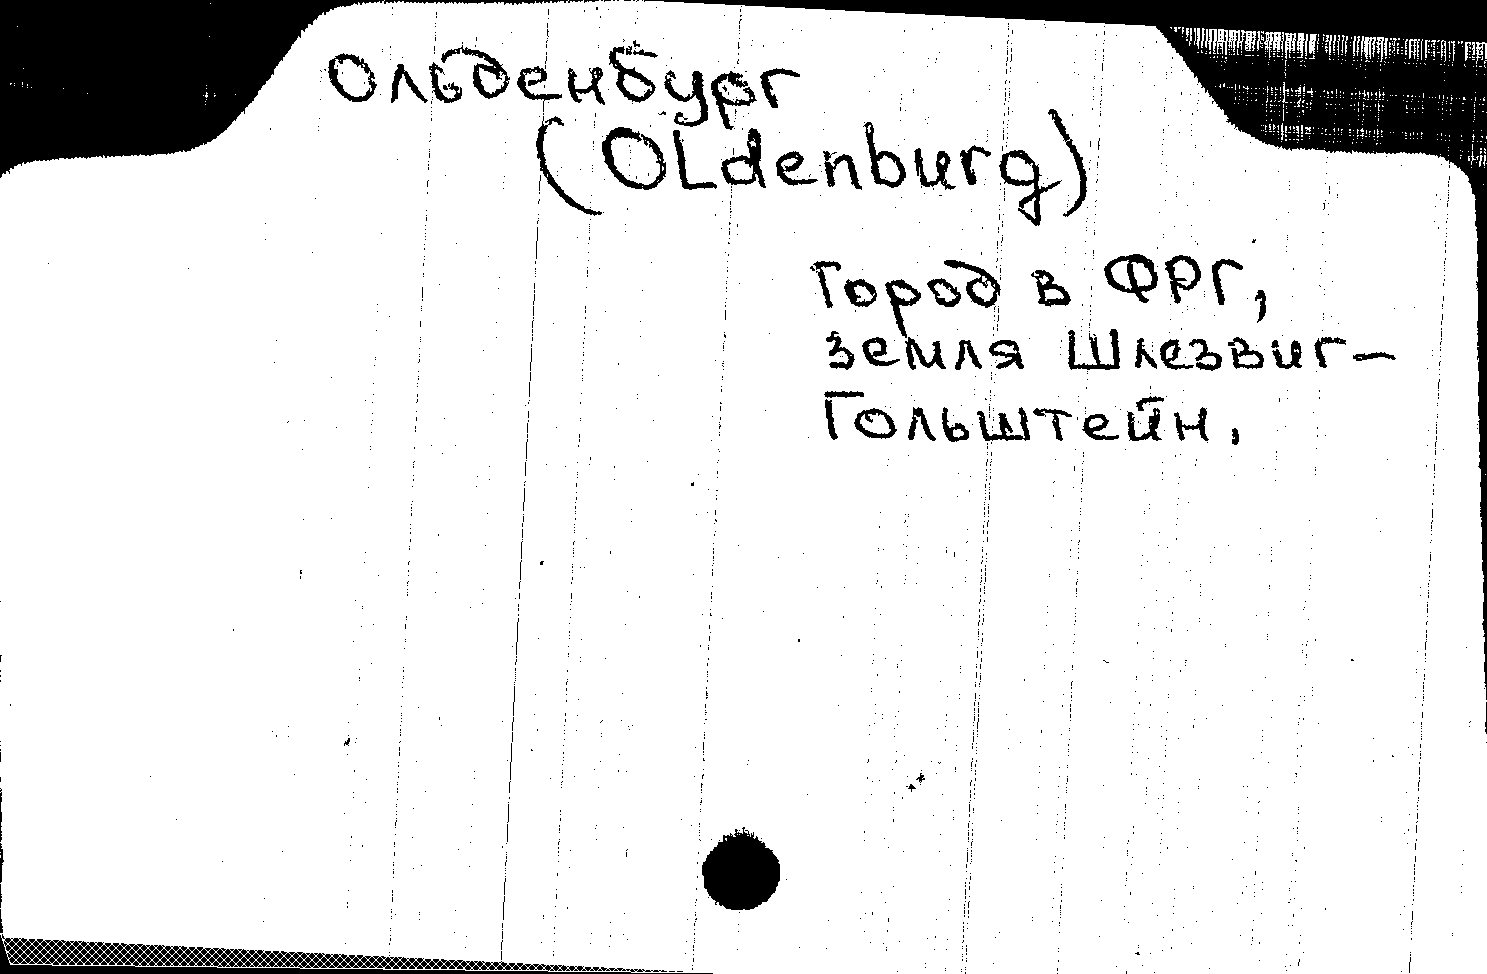 Ольденбург
(Oldenburg)
Город в ФРГ,
земля Шлезвиг-
Гольштейн.